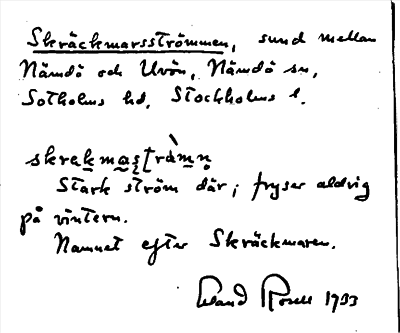 Skräckmarsströmmen, sund mellan
Nämdö och Uvön, Nämdö sn,
Sotholms hd, Stockholms l.
skrekmas[tràmn̥
Stark ström där; fryser aldrig
på vintern.
Namnet efter Skräckmaren.
Erland Rosell 1933